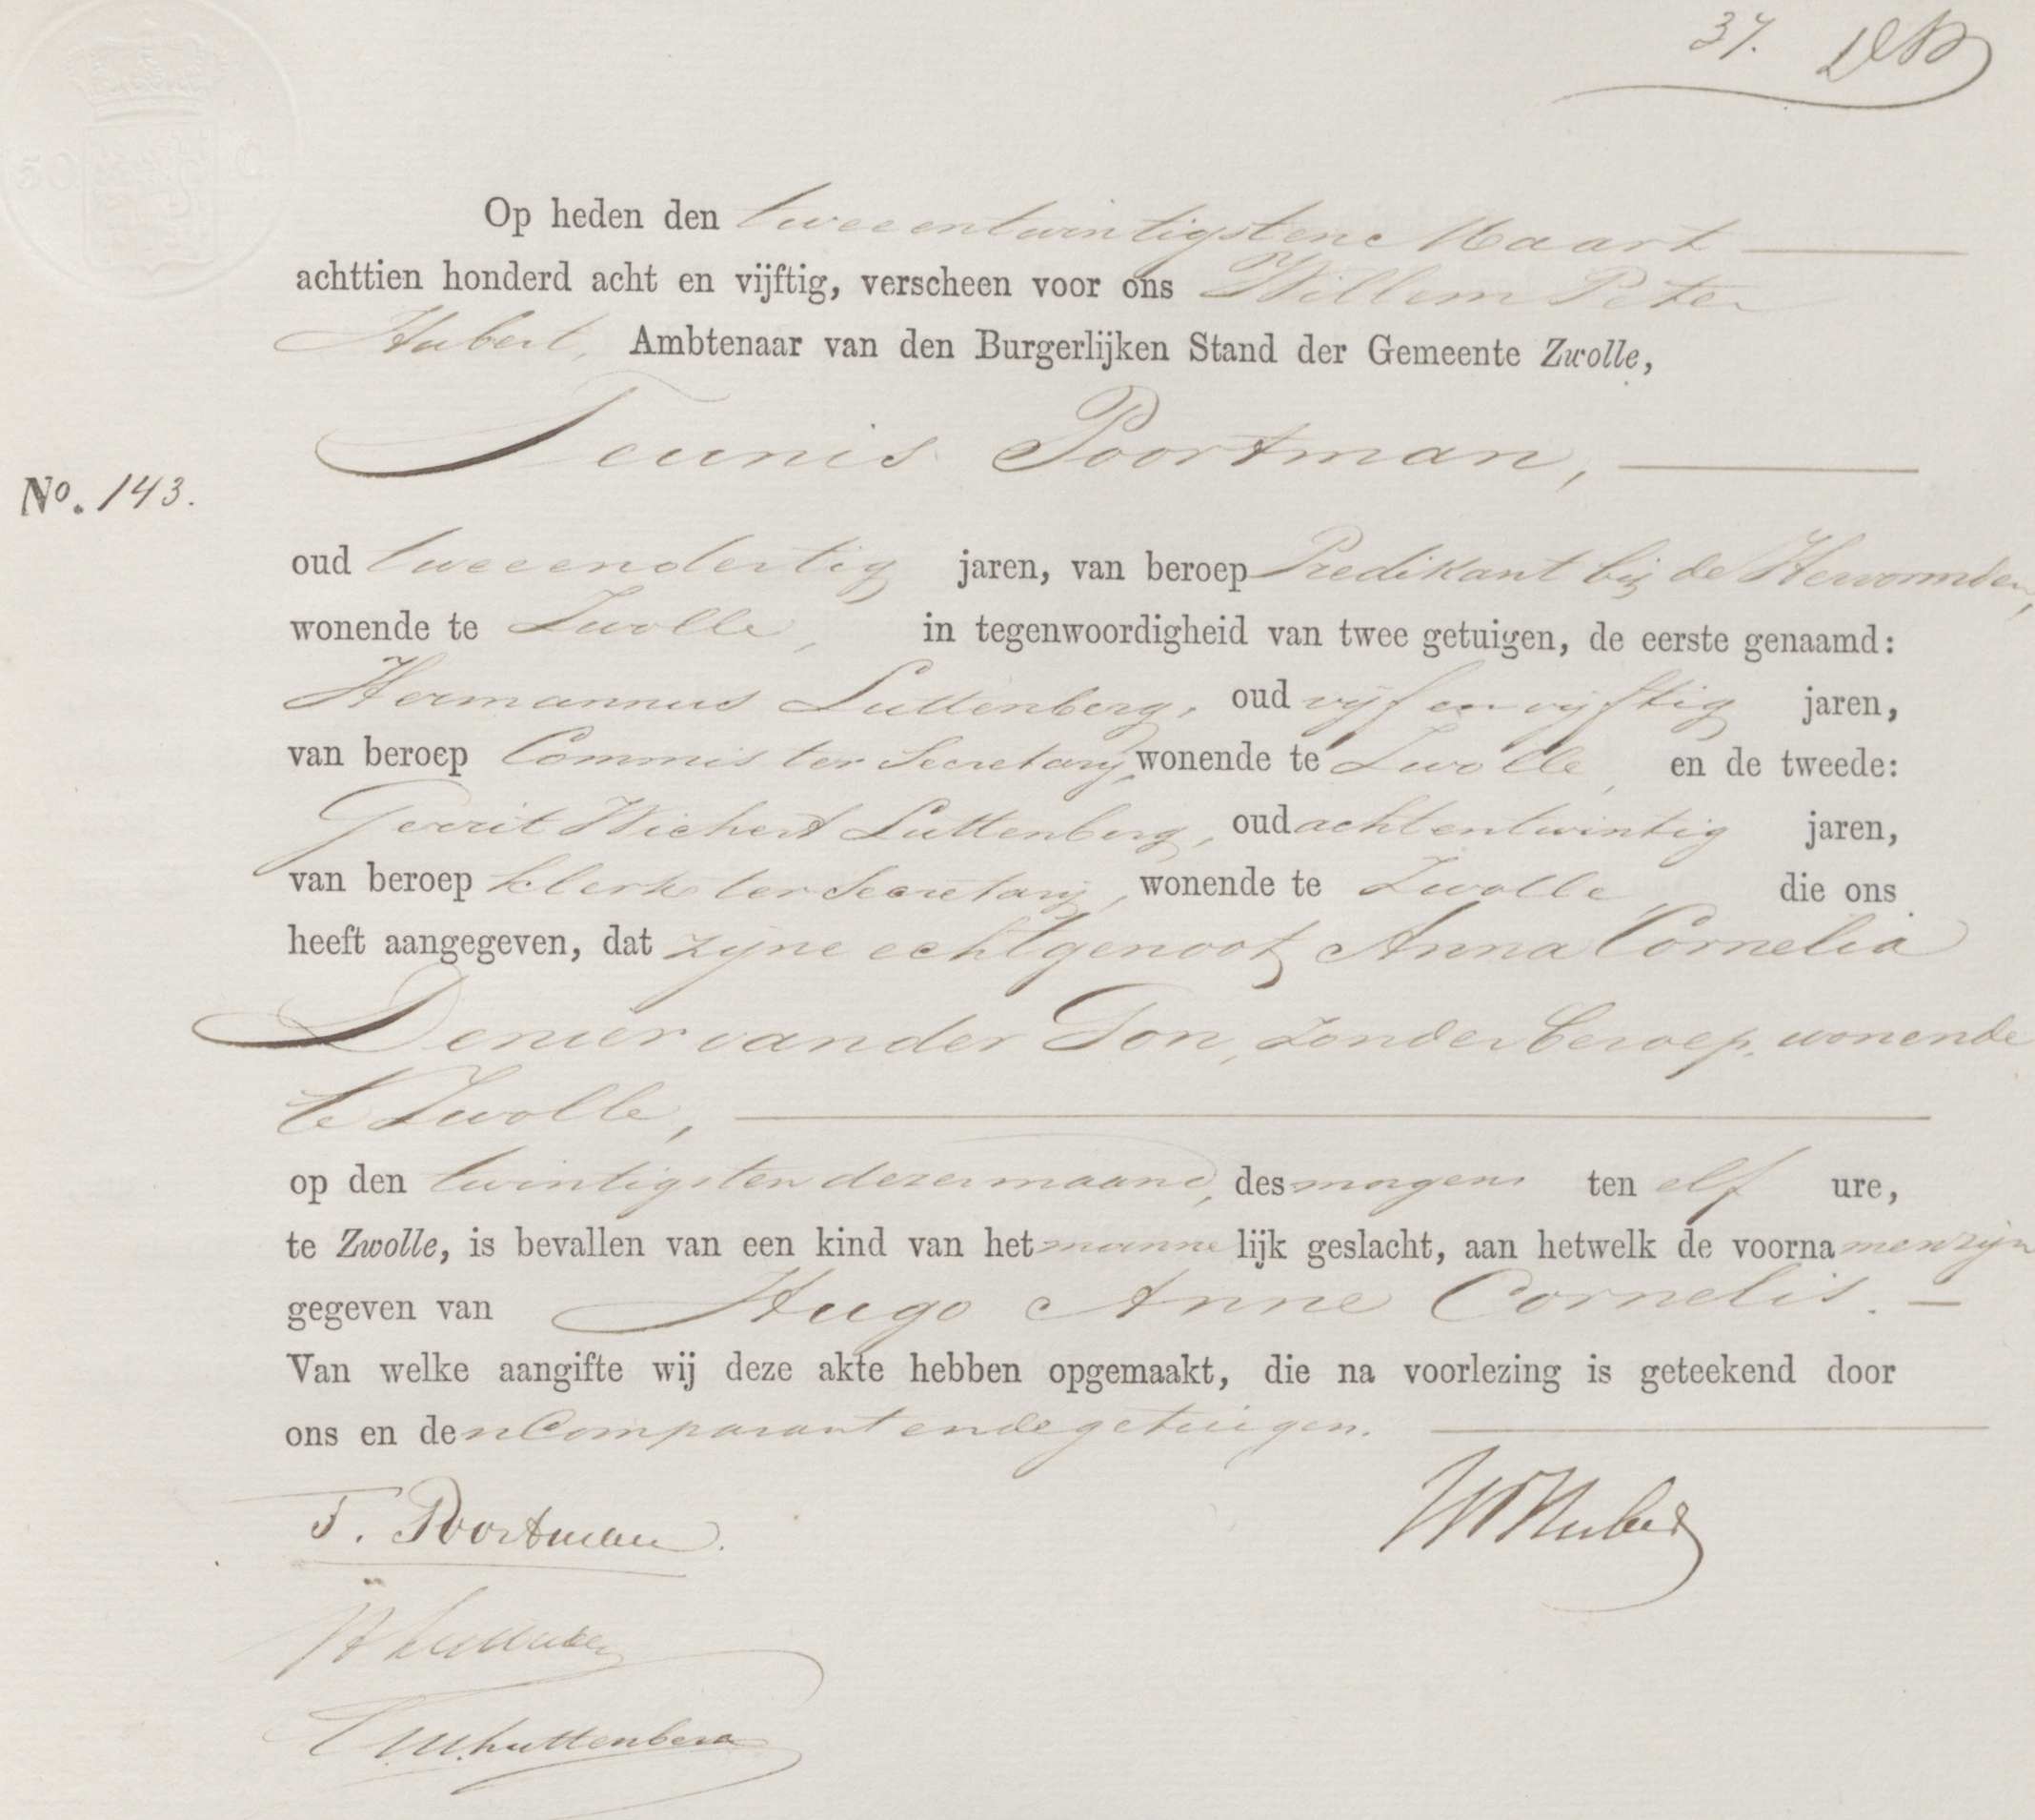 37.
50 C
Op heden den tweeentwintigsten Maart
achttien honderd acht en vijftig, verscheen voor ons Willem Peter
Hubert, Ambtenaar van den Burgerlijken Stand der Gemeente Zwolle,
Teunis Poortman,
No. 143.
oud tweeendertig jaren, van beroep Predikant bij de Hervormden,
wonende te Zwolle, in tegenwoordigheid van twee getuigen, de eerste genaamd:
Hermannus Luttenberg, oud vijf en vijftig jaren,
van beroep Commis ter Secretarij, wonende te Zwolle, en de tweede:
Gerrit Wichert Luttenberg, oud achtentwintig jaren,
van beroep klerk ter Secretarij, wonende te Zwolle, die ons
heeft aangegeven, dat zijne echtgenoot Anna Cornelia
Denier van der Gon, zonder beroep, wonende
te Zwolle,
op den twintigsten dezer maand, des morgens ten elf ure,
te Zwolle, is bevallen van een kind van het mannelijk geslacht, aan hetwelk de voornamen zijn
gegeven van Hugo Anne Cornelis.
Van welke aangifte wij deze akte hebben opgemaakt, die na voorlezing is geteekend door
ons en den Comparant en de getuigen.
T. Poortman.
WPHubert
H Luttenberg
G.W. Luttenberg